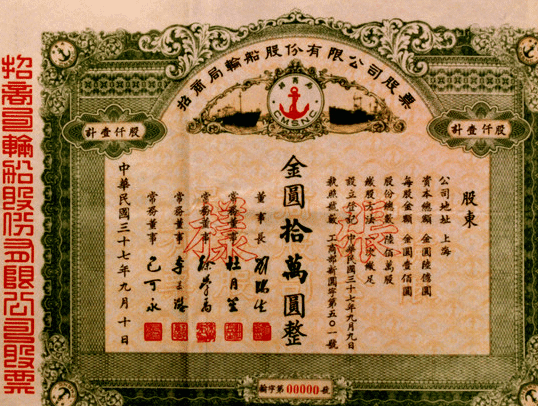 招商局輪船股份有限公司股票
CMSNC
計壹仟股
計壹仟股
股東
公司地址 上海
資本總額 金圓陸億圓
每股金額 金圓壹佰圓
股份總數 陸佰萬股
繳股方法 一次繳足
設立登記 中華民國三十七年九月九日
執照號數 工商部新圓字第五〇一號
金圓拾萬圓整
董事長 劉鴻生
常務董事 杜月笙
常務董事 徐學禹
常務董事
常務董事
中華民國三十七年九月十日
樣
輪字第00000號
招商局輪船股份有限公司股票